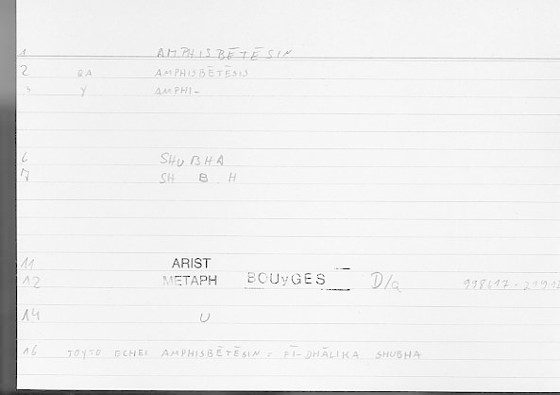 1 AMPHISBĒTĒSIN
2 GA AMPHISBĒTĒSIS
Y AMPHI-
6 SHUBHA
7 SH B H
11 ARIST
12 METAPH BOUyGES D/a
14 U
16 TOYTO ECHEI AMPHISBĒTĒSIN : FĪ-DHĀLIKA SHUBHA